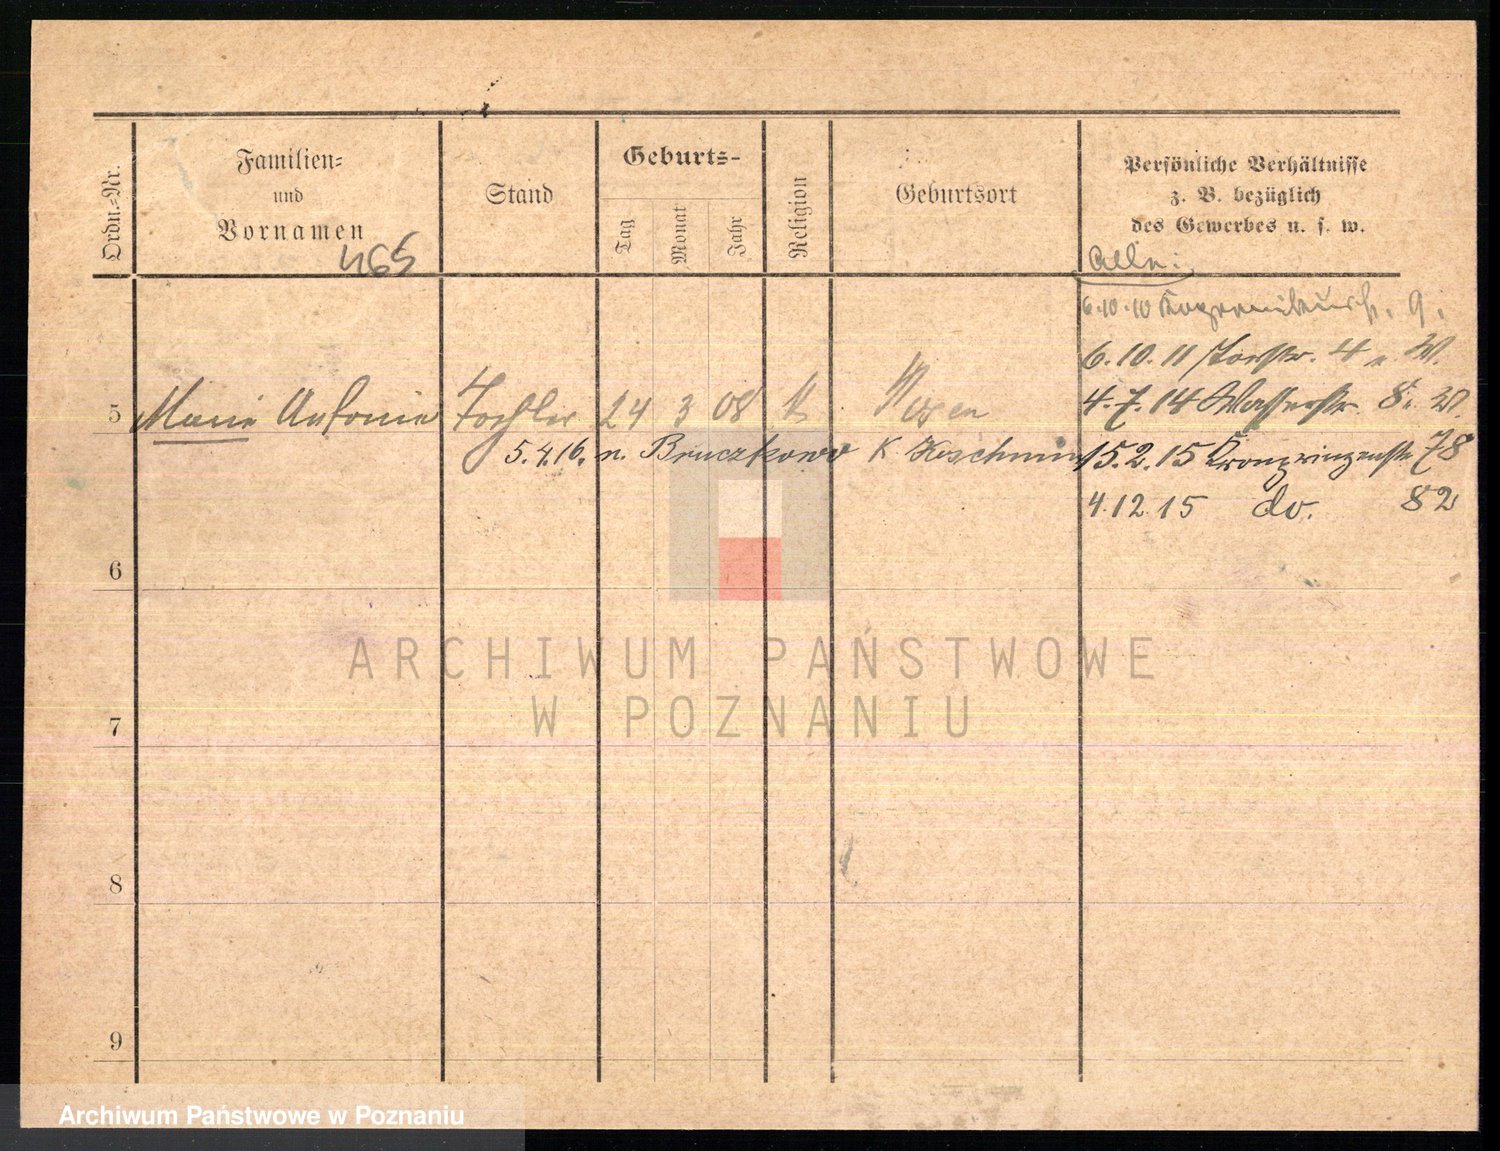 Ordn.=Nr.
Familien=
und
Vornamen
465
Stand
Geburts-
Tag
Monat
Jahr
Religion
Geburtsort
Persönliche Verhältnisse
z. B. bezüglich
des Gewerbes u. s. w.
Alle:
6.10.10 9.
6.10.11 Torstr. 4 W.
5 Marie Antonie Tochter 24 3 08 k Posen 4.7.14 Wasserstr. 8. W.
5.4.16. n. Bruczkowo K. Koschmin 15.2.15 Kronprinzenstr 78
4.12.15 do. 82
6
7
8
9
ARCHIWUM PAŃSTWOWE
W POZNANIU
Archiwum Państwowe w Poznaniu